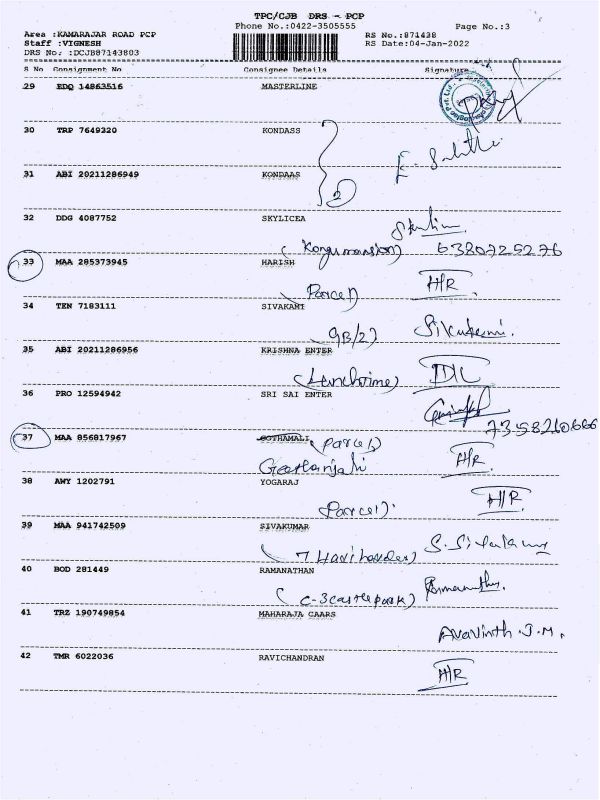 TPC/CJB DRS - PCP
Phone No.:0422-3505555
Page No.:3
Area :KAMARAJAR ROAD PCP
RS No.:871438
Staff :VIGNESH
RS Date:04-Jan-2022
DRS No: :DCJB87143803
S No Consignment No Consignee Details Signature
29 EDQ 14863516 MASTERLINE
30 TRP 7649320 KONDASS
31 ABI 20211286949 KONDAAS
2
32 DDG 4087752 SKYLICEA
(Kongumansion) 6380725276
33 MAA 285373945 HARISH H/R
Parcel)
34 TEN 7183111 SIVAKAMI
9B/2)
35 ABI 20211286956 KRISHNA ENTER
(Lunchtime)
36 PRO 12594942 SRI SAI ENTER
7358210666
37 MAA 856817967 GOTHAMALI (Parcel)
Geethanjali H/R
38 AWY 1202791 YOGARAJ H/R
Parcel)
39 MAA 941742509 SIVAKUMAR
40 BOD 281449 RAMANATHAN
(C-3castlepark)
41 TRZ 190749854 MAHARAJA CAARS
Aravinth.J.M.
42 TMR 6022036 RAVICHANDRAN
H/R